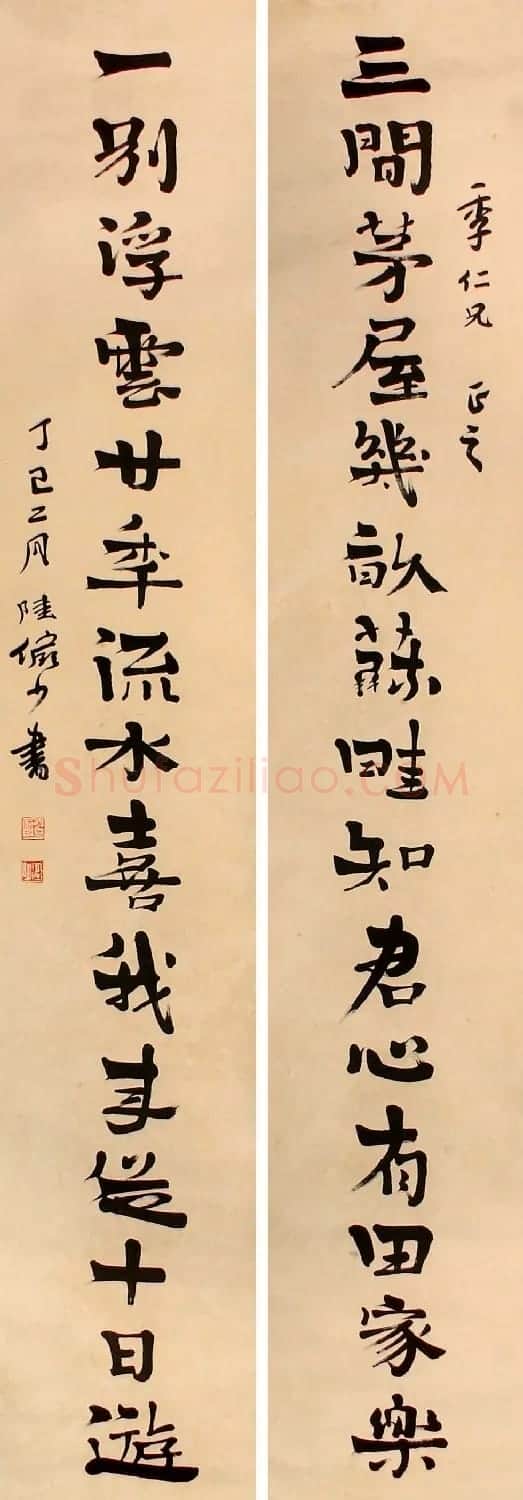 季仁兄 正之
三間茅屋幾畝蔬畦知君心有田家樂
一別浮雲廿年流水喜我來從十日遊
丁巳二月 陸儼少書
Shufaziliao.com